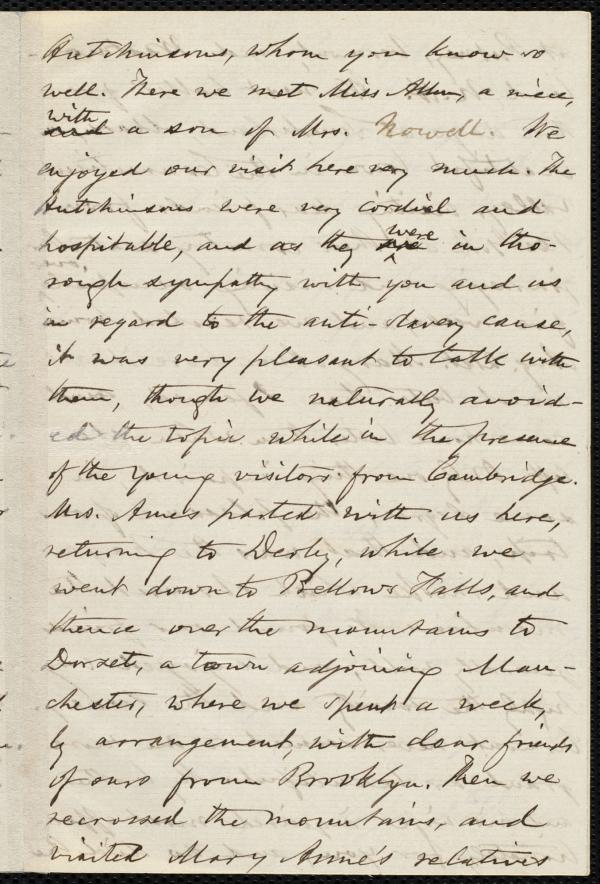 Hutchinsons, whom you know so
well. There we met Miss Allen, a niece,
with
and a son of Mrs. Nowell. We
enjoyed our visit here very much. The
Hutchinsons were very cordial and
hospitable, and as they are were in tho-
rough sympathy with you and us
in regard to the anti-slavery cause,
it was very pleasant to talk with
them, though we naturally avoid-
ed the topic while in the presence
of the young visitors from Cambridge.
Mrs. Ames parted with us here,
returning to Derby, while we
went down to Bellows Falls, and
thence over the mountains to
Dorset, a town adjoining Man-
chester, where we spent a week,
by arrangement, with dear friends
of ours from Brooklyn. Then we
recrossed the mountains, and
visited Mary Anne's relatives